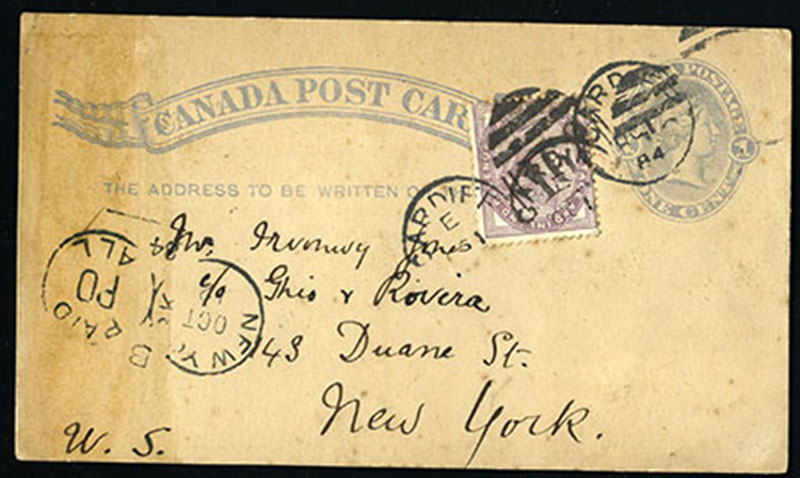 CANADA POST CAR
THE ADDRESS TO BE WRITTEN O
POSTAGE
ONE CEN
CARDIFF
84
CARDIFF
E
NEW YO
OCT
PAID
ALL
B
Mr. Jones
c/o Ghio & Rovera
43 Duane St.
New York.
U. S.